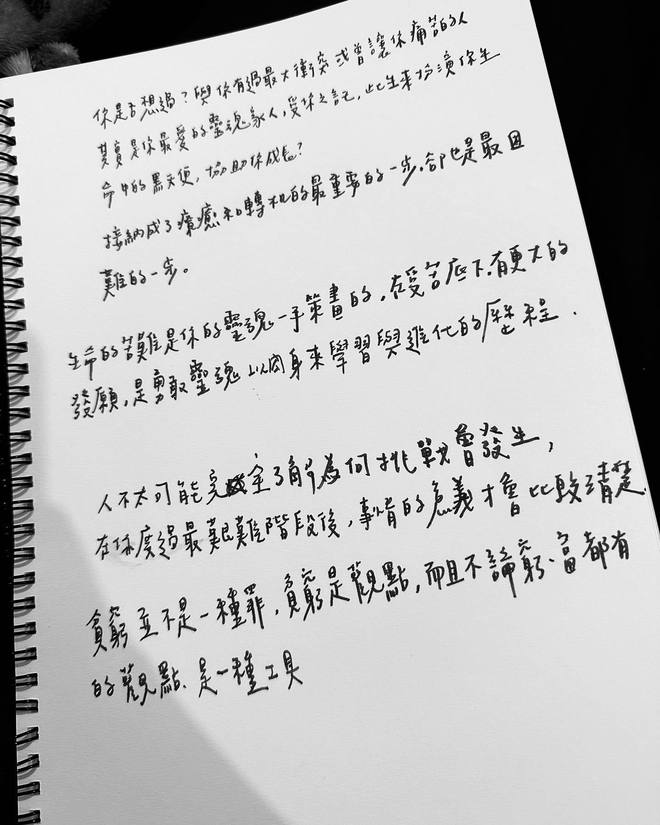 你是否想過？與你有過最大衝突或曾讓你痛苦的人
其實是你最愛的靈魂家人,受你之託,此生來扮演你生
命中的黑天使,協助你成長?
接納成了療癒和轉机的最重要的一步.卻也是最困
難的一步。
生命的苦難是你的靈魂一手策畫的.在受苦底下.有更大的
發願,是勇敢靈魂以肉身來學習與進化的歷程.
人不太可能完全了解為何挑戰會發生,
在你度過最艱難階段後,事情的意義才會比較清楚.
貧窮並不是一種罪,貧窮是觀點,而且不論窮、富都有
的觀點.是一種工具